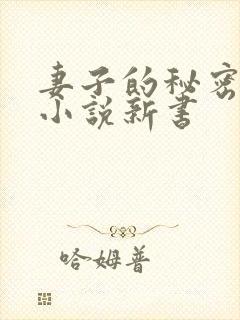 妻子的秘密
小说新书
哈姆普